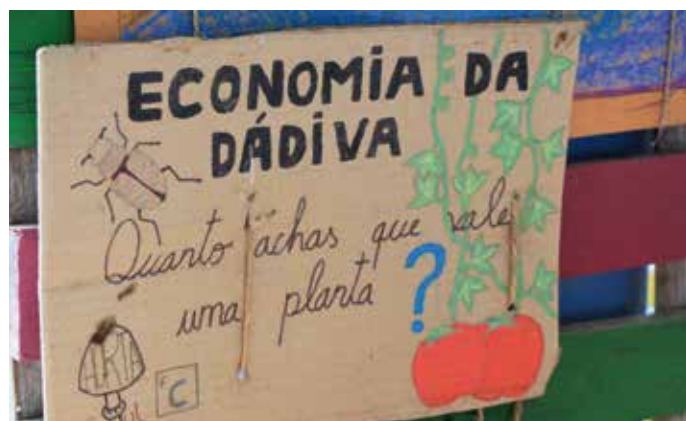 ECONOMIA DA
DÁDIVA
Quanto achas que vale
uma planta ?
C